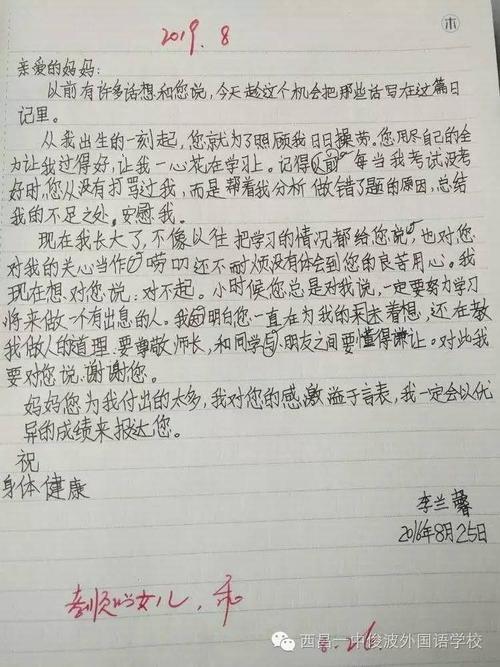 2019.8
亲爱的妈妈:
以前有许多话想和您说,今天趁这个机会把那些话写在这篇日
记里。
从我出生的一刻起,您就为了照顾我日日操劳。您用尽自己的全
力让我过得好,让我一心花在学习上。记得以前每当我考试没考
好时,您从没有打骂过我,而是帮着我分析做错了题的原因,总结
我的不足之处,安慰我。
现在我长大了,不像以往把学习的情况都给您说,也对您
对我的关心当作唠叨还不耐烦没有体会到您的良苦用心。我
现在想对您说:对不起。小时候您总是对我说,一定要努力学习
将来做一个有出息的人。我明白您一直在为我的未来着想,还在教
我做人的道理:要尊敬师长,和同学与小朋友之间要懂得谦让。对此我
要对您说:谢谢您。
妈妈您为我付出的太多,我对您的感激溢于言表,我一定会以优
异的成绩来报达您。
祝
身体健康
李兰馨
2016年8月25日
孝顺的女儿,
8.26
西昌一中俊波外国语学校